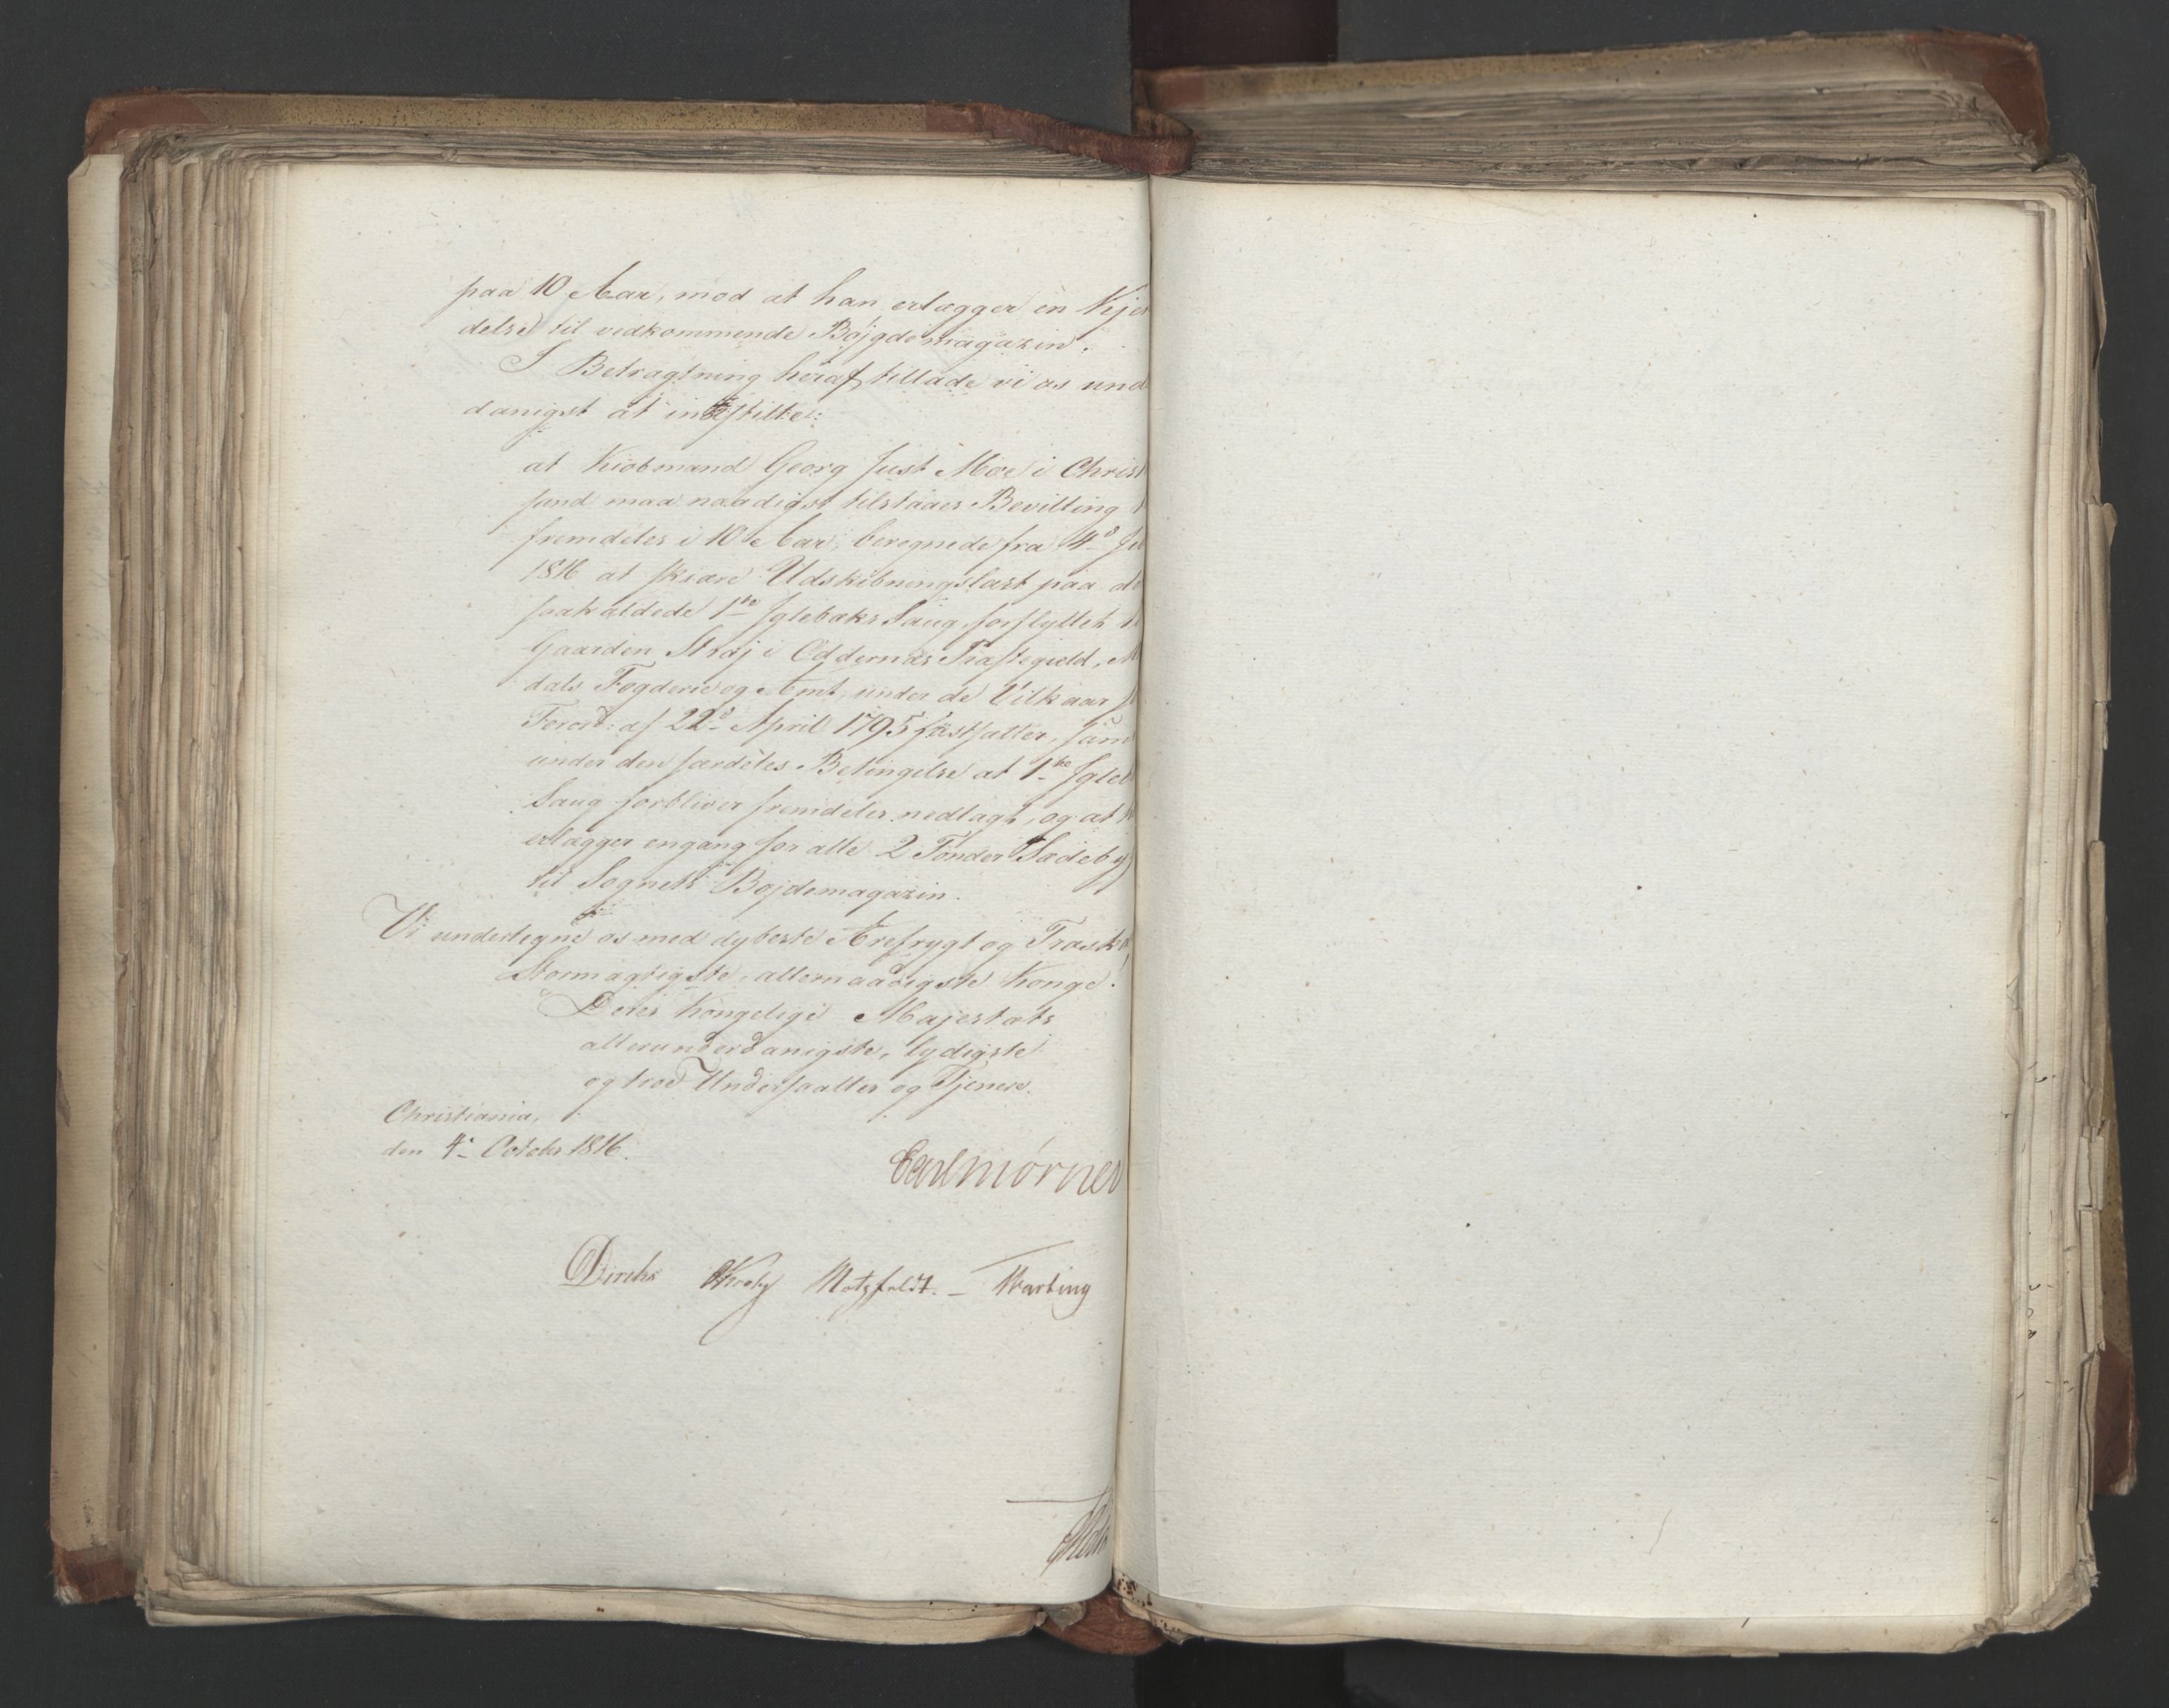 paa 10 Aar, mod at han erlægger en Kjen
delse til vedkommende Bøjgdemagazin.
I Betragtning heraf tillade vi os und
danigst at indstille:
at Kiøbmand Georg Just Moe i Christ
sand maa naadigst tilstaaes Bevilling
fremdeles i 10 Aar, beregnede fra 4de
1816 at skiære Udskibningslast paa de
saakaldede 1ste Iglebæks Saug, forflyttet
Gaarden Straj i Oddernæs Præstegield, M
dals Fogderie og Amt, under de Vilkaar
Forord: af 22d April 1795 fastsætter, sam
under den særdeles Betingelse at 1ste Igleb
Saug forbliver fremdeles nedlagt, og at
erlægger engang for alle 2 Tønder Sædeby
til Sognets Bøjdemagazin.
Vi undertegne os med dybeste Ærefrygt og Troesk
Stormægtigste, allernaadigste Konge.
Deres Kongelige Majestæts
allerunderdanigste, lydigste
og troe Undersaatter og Tjenere.
Christiania,
den 4 October 1816.
Carl Mörner
Diriks Krohg Motzfeldt. – Thaning